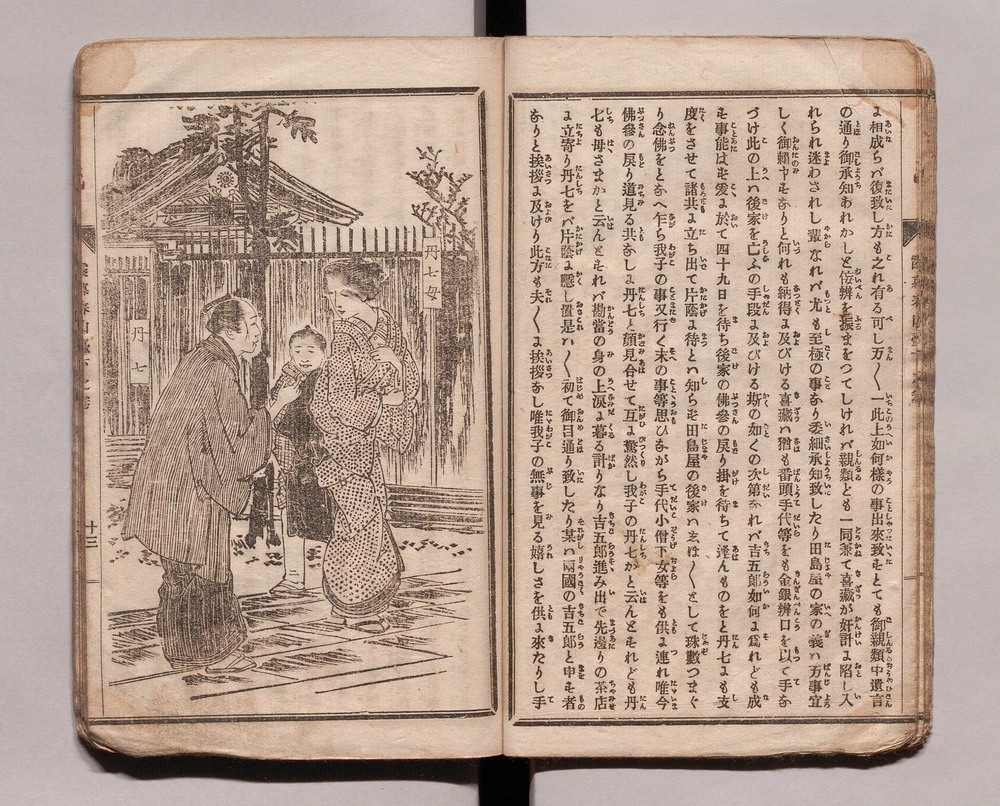 よ相成らバ復致し方も之れ有る可し万〻一此上如何様の事出來致すとても御親類中遺言
の通り御承知あれかしと佞辨を振まつてしけれバ親類とも一同兼て喜藏が奸計よ陷し入
れられ迷わされし輩なれバ尤も至極の事なり委細承知致したり田島屋の家の義ハ万事宜
しく御頼申すなりと何れも納得よ及びける喜藏ハ猶も番頭手代等をも金銀辨口を以て手な
づけ此の上ハ後家を亡ふの手段よ及びける斯の如くの次第なれバ吉五郎如何よ爲れども成
す事能はず爰よ於て四十九日を待ち後家の佛參の戻り掛を待ちて逢んものをと丹七よも支
度をさせて諸共よ立ち出て片蔭よ待とハ知らず田島屋の後家ハ〻として珠數つまぐ
り念佛をとなへ乍ら我子の事又行く末の事等思ひながら手代小僧下女等をも供よ連れ唯今
佛參の戻り道見る共なしよ丹七と顔見合せて互よ驚然し我子の丹七かと云んとすれども丹
七も母さまかと云んとすれバ勘當の身の上涙よ暮る計りなり吉五郎進み出で先邊りの茶店
よ立寄り丹七をバ片蔭よ隱し置是ハ〳〵初て御目通り致したり某ハ兩國の吉五郎と申す者
なりと挨拶よ及けり此方も夫〳〵よ挨拶なし唯我子の無事を見る嬉しさを供よ來たりし手
丹七母
丹七
十三